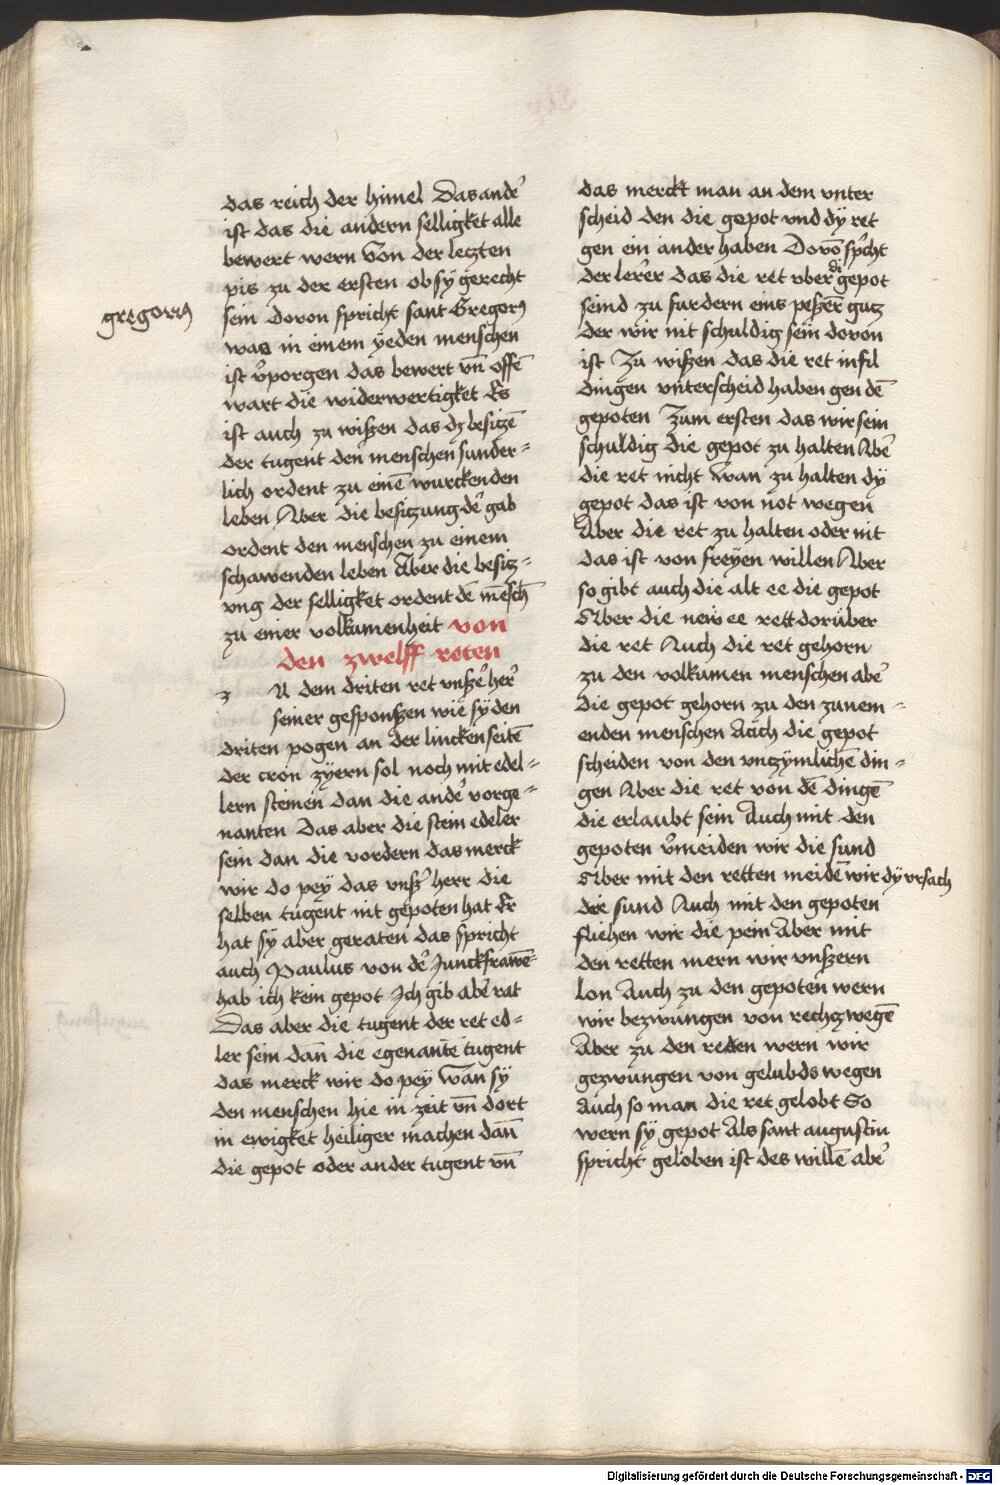 gregori9
das reich der himel Das ander
ist das die andern selligket alle
bewert wern Von der leczten
pis zu der ersten ob sy gerecht
sein Doron spricht sant Gregori9
was in einem yeden menschen
ist v̾porgen das bewert vn̄ offē
wart die widerwertigket Es
ist auch zu wißen das dz besiczē
der tugent den menschen sunder=
lich ordent zu einē wurckenden
leben Aber die besiczung der gab
ordent den menschen zu einem
schawenden leben Aber die besicz=
ung der selligket ordent dē mēsch̄
zu einer volkumenheit von
den zwelff reten
z U dem driten ret vnßer her
seiner gesponßen wie sy den
driten pogen an der lincken seitē
der cron zyern sol noch mit edel=
lern steinen dan die ander vorge=
nanten Das aber die stein edeler
sein dan die vordern das merck
wir do pey das vnß herr die
selben tugent nit gepoten hat Er
hat sy aber geraten das spricht
auch Paulus von der Junckfrawē=
hab ich kein gepot Ich gib aber rat
Das aber die tugent der ret ed=
ler sein dan̄ die egenante tugent
das merck wir do pey Wan sy
den menschen hie in zeit vn̄ dort
in ewigket heiliger machen dan̄
die gepot oder ander tugent vn̄
das merckt man an dem vnter
scheid den die gepot vnd dy ret
gen ein ander haben Dorō sp̄cht
der lerer das die ret vber di gepot
seind zu furdern eins peßer gutz
der wir nit schuldig sein doron
ist Zu wißen das die ret in fil
dingen vnterscheid haben gen dē
gepoten Zum ersten das wir sein
schuldig die gepot zu halten Aber
die ret nicht Wan zu halten dy
gepot das ist von not wegen
Aber die ret zu halten oder nit
das ist von freyen willen Aber
so gibt auch die alt ee die gepot
Aber die new ee rett dorüber
die ret Auch die ret gehorn
zu den volkumen menschen aber
die gepot gehorn zu den zunem=
enden menschen Auch die gepot
scheiden von den vnczymlichē din=
gen Aber die ret von dē dingē
die erlaubt sein Auch mit den
gepoten v̾meiden wir die sund
Aber mit den retten meidē wir dy vrsach
der sund Auch mit den gepoten
fliehen wir die pein Aber mit
den retten mern wir vnßern
lon Auch zu den gepoten wern
wir bezwungen von rechcz wegē
Aber zu den reden wern wir
gezwungen von gelubds wegen
Auch so man die ret gelobt So
wern sy gepot Als sant augustin
spricht geloben ist des willē aber
Digitalisierung gefördert durch die Deutsche Forschungsgemeinschaft - DFG